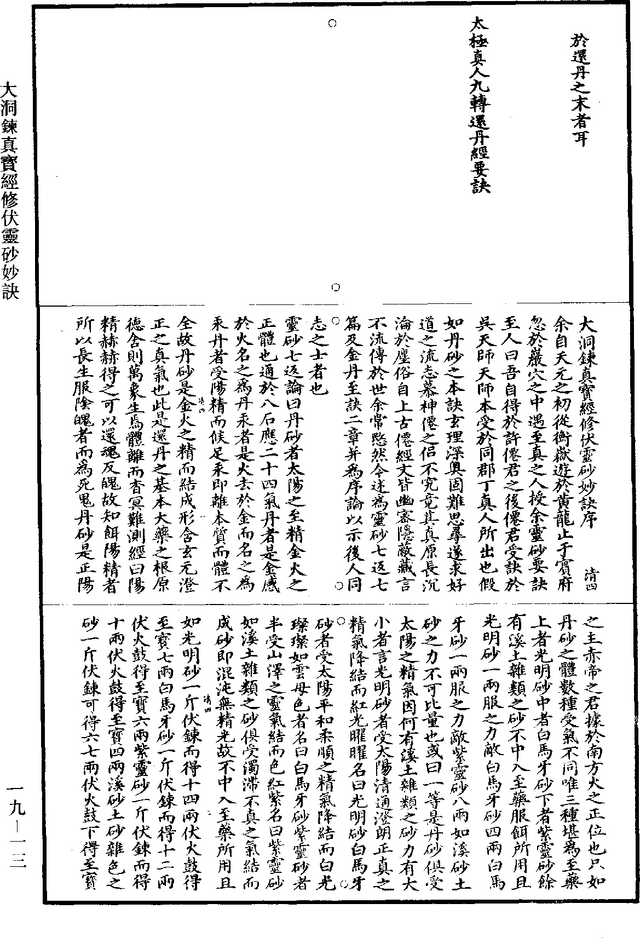 於還丹之末者耳
太極真人九轉還丹經要訣
大洞鍊真寶經修伏靈砂妙訣序
清四
余自天元之初從衡嶽遊於黃龍止于賓府
忽於巖穴之中遇至真之人授余靈砂要訣
至人曰吾自得於許僊君之後僊君受訣於
吳天師天師本受於同郡丁真人所出也假
如丹砂之本訣玄理深奧固難思尋遂求好
道之流志慕神僊之侣不究竟其真原長沉
淪於塵俗自上古僊經文皆幽審隱蔽藏言
不流傳於世余常愍然今述為靈砂七返七
篇及金丹至訣二章并為序論以示後人同
志之士者也
靈砂七返論曰丹砂者太陽之至精金火之
正體也通於八石應二十四氣丹者是金感
於火名之為丹汞者是火去於金而名之為
汞丹者受陽精而候足汞即離本質而體不
全故丹砂是金火之精而結成形含玄元澄
正之真氣也此是還丹之基本大藥之根原
德含則萬象生焉體離而杳冥難測經曰陽
精赫赫得之可以還魂反魄故知餌陽精者
所以長生服陰魄者而為死鬼丹砂是正陽
之主赤帝之君據於南方火之正位也只如
丹砂之體數種受氣不同唯三種堪為至藥
上者光明砂中者白馬牙砂下者紫靈砂餘
有溪土雜類之砂不中入至藥服餌所用且
光明砂一兩服之力敵白馬牙砂四兩白馬
牙砂一兩服之力敵紫靈砂八兩如溪砂土
砂之力不可比量也或曰一等是丹砂俱受
太陽之精氣因何有溪土雜類之砂力有大
小者言光明砂者受太陽清通澄朗正真之
精氣降結而紅光曜曜名曰光明砂白馬牙
砂者受太陽平和柔順之精氣降結而白光
璨璨如雲母色者名曰白馬牙砂紫靈砂者
半受山澤之靈氣結而色紅紫名曰紫靈砂
如溪土雜類之砂俱受濁滯不真之氣結而
成砂即混沌無精光故不中入至藥所用且
如光明砂一斤伏鍊而得十四兩伏火鼓得
至寶七兩白馬牙砂一斤伏鍊而得十二兩
伏火鼓得至寶六兩紫靈砂一斤伏鍊而得
十兩伏火鼓得至寶四兩溪砂土砂雜色之
砂一斤伏鍊可得六七兩伏火鼓下得至寶
大洞鍊真寶經修伏靈砂妙訣
一九－一三